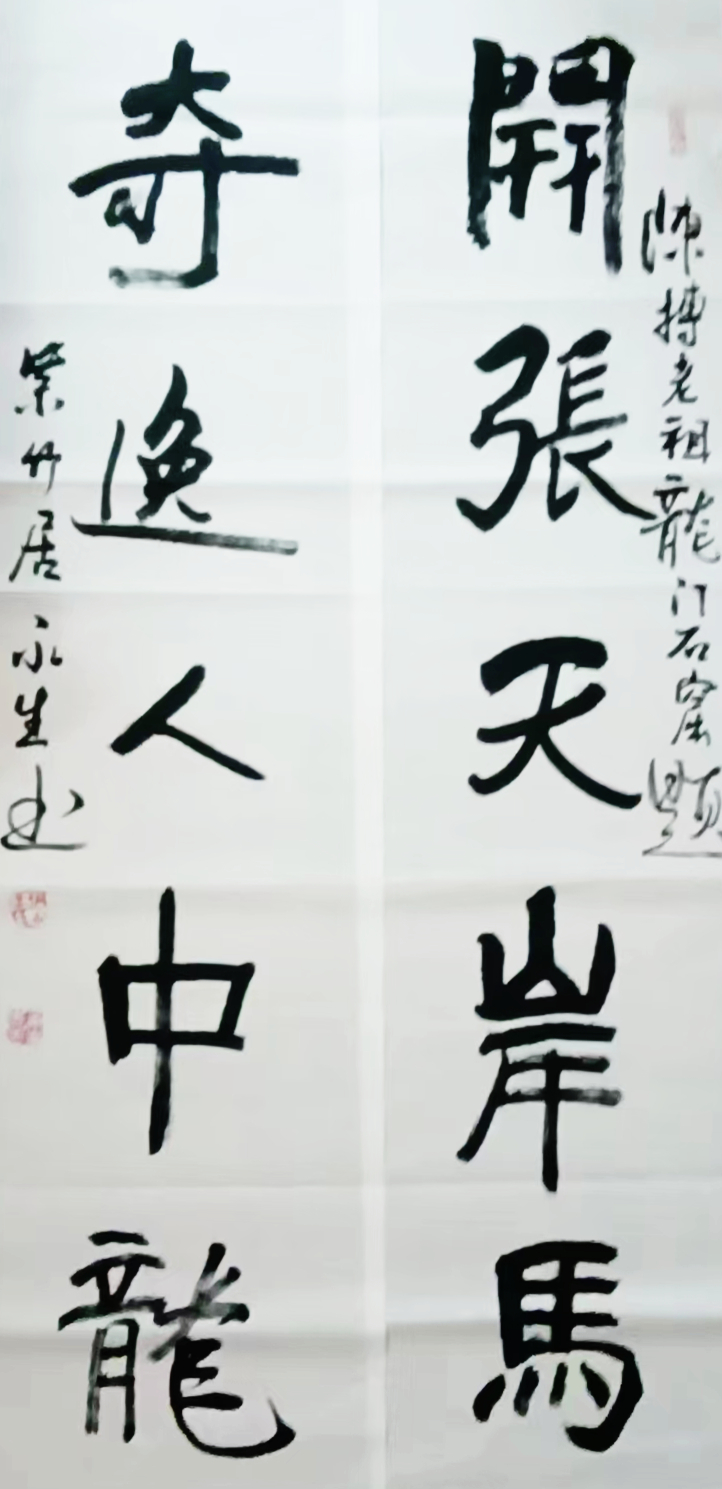 陳摶老祖龍门石窟题
開張天岸馬
奇逸人中龍
紫竹居永生书